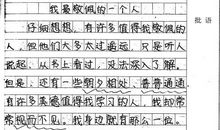 我最敬佩的一个人
批语
仔细想想，有许多值得我敬佩的
人，但他们大多太过遥远，只是听人
说起，从书上看过，没法深入了解。
但是，还有一些朝夕相处、普普通通、
有许多美德值得我学习的人，我却常
常视而不见。我身边就有那么一位。